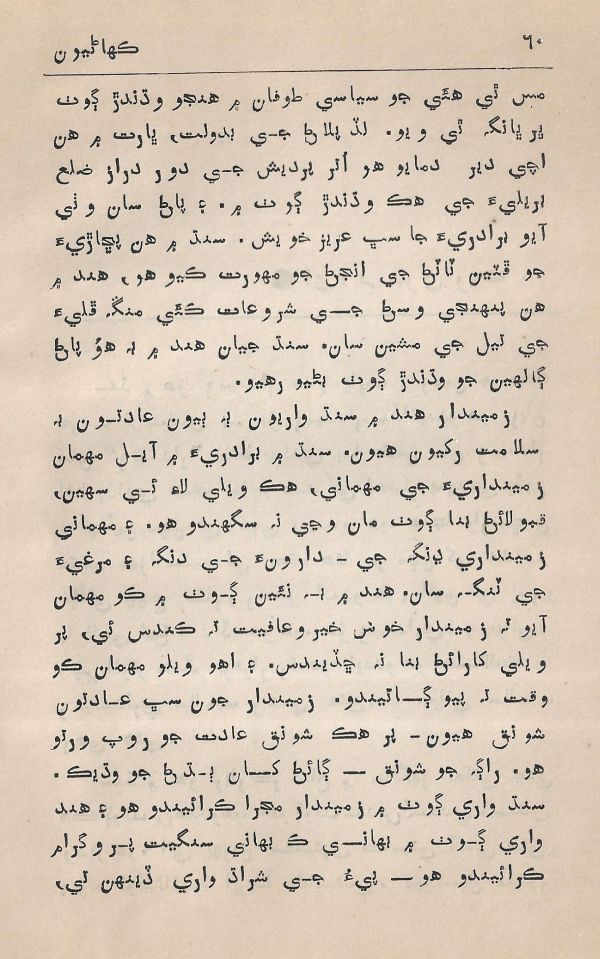 ٦٠
ڪهاڻيون
مس ئي هئي جو سياسي طوفان ۾ هنجو وڌندڙ ڳوٺ
ڀرڀانگ ٿي ويو. لڏپلاڻ جي بدولت، ڀارت ۾ هن
اچي ديرو ڄمايو هو اُتر پرديش جي دور دراز ضلع
بريليءَ جي هڪ وڌندڙ ڳوٺ ۾. ۽ پاڻ سان وٺي
آيو برادريءَ جا سڀ عزيز خويش. سنڌ ۾ هن پڇاڙيءَ
جو ڦٽين ٽاٽڻ جي انجڻ جو مهورت ڪيو هو، هند ۾
هن پنهنجي وسڻ جي شروعات ڪئي منگ ڦليءَ
جي تيل جي مشين سان. سنڌ جيان هند ۾ به هوُ پاڻ
ڳالهين جو وڌندڙ ڳوٺ بڻيو رهيو.
زميندار هند ۾ سنڌ واريون ٻه ٻيون عادتون به
سلامت رکيون هيون. سنڌ ۾ برادريءَ ۾ آيل مهمان
زمينداريءَ جي مهماني، هڪ ويلي لاءِ ئي سهين،
قبولائڻ بنا ڳوٺ مان وڃي نه سگهندو هو. ۽ مهماني
زمينداري ڍنگ جي - دارونءَ جي دنگ ۽ مرغيءَ
جي ٽنگ سان. هند ۾ به نئين ڳوٺ ۾ ڪو مهمان
آيو ته زميندار خوش خير وعافيت ته ڪندس ئي، پر
ويلي کارائڻ بنا نه ڇڏيندس. ۽ اهو ويلو مهمان ڪو
وقت ته پيو ڳائيندو. زميندار جون سڀ عادتون
شونق هيون - پر هڪ شونق عادت جو روپ ورتو
هو. راڳ جو شونق — ڳائڻ کان ٻڌڻ جو وڌيڪ.
سنڌ واري ڳوٺ ۾ زميندار مجرا ڪرائيندو هو ۽ هند
واري ڳوٺ ۾ بهاني ڪ بهاني سنگيت پروگرام
ڪرائيندو هو — پيءُ جي شراڌ واري ڏينهن تي،